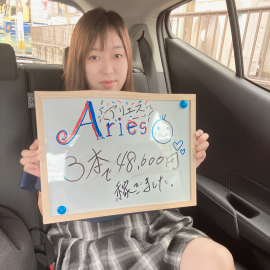 アリエス
Aries
3本で48,600円
稼ぎました。